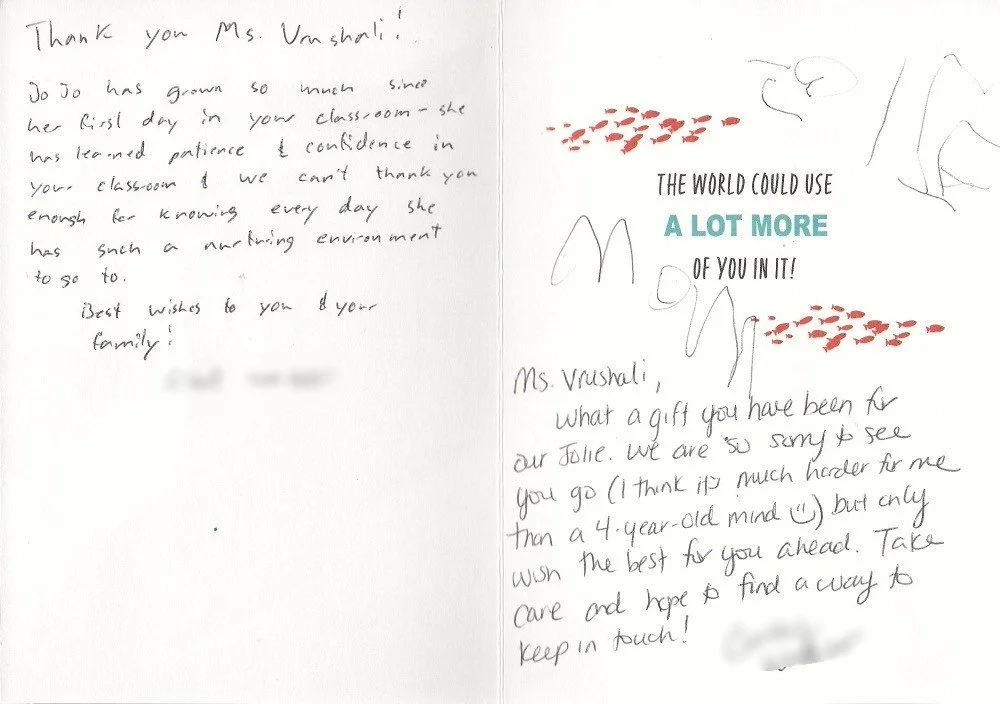 Thank you Ms. Vrushali!
JoJo has grown so much since
her first day in your classroom - she
has learned patience & confidence in
your classroom & we can't thank you
enough for knowing every day she
has such a nurturing environment
to go to.
Best wishes to you & your
family!
THE WORLD COULD USE
A LOT MORE
OF YOU IN IT!
Ms. Vrushali,
What a gift you have been for
our Jolie. We are so sorry to see
you go (I think it's much harder for me
than a 4-year-old mind) but only
wish the best for you ahead. Take
care and hope to find a way to
keep in touch!